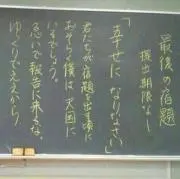 最後の宿題
提出期限なし
「幸せに なりなさい」
君たちが宿題を出す頃に
おそらく僕は天国に
いるでしょう。
急いで報告に来るな。
ゆっくりでええから